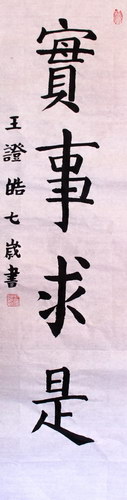 實事求是
王證皓七歲書